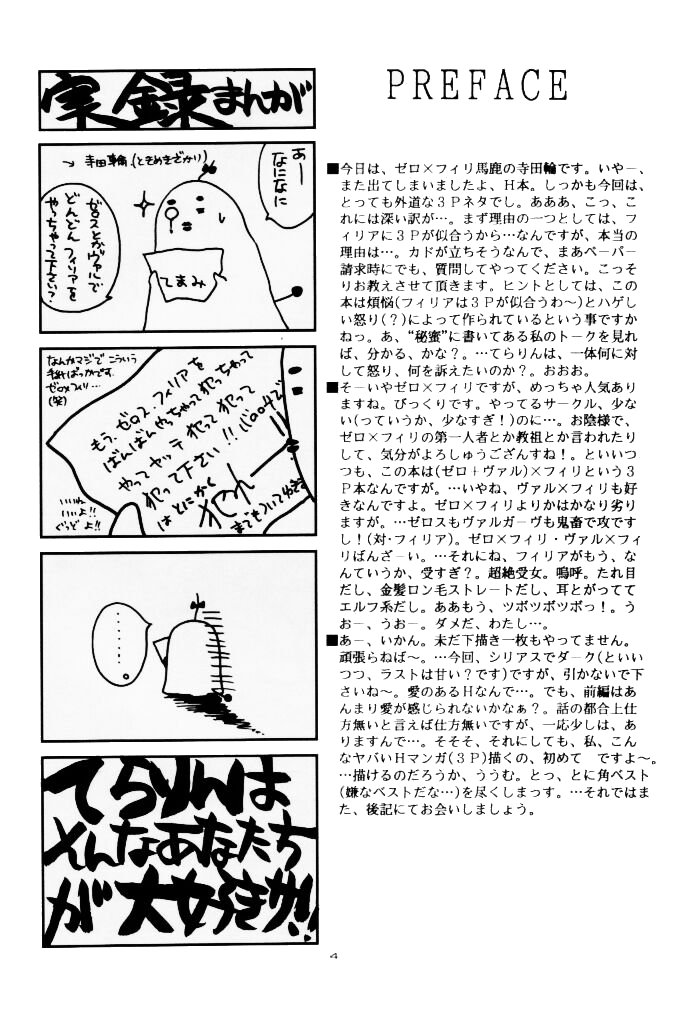 実録まんが
あー
なになに
→ 寺田輪(ときめきざかり)
ゼロスとかヴァルで
どんどんフィリアを
やっちゃって下さい?
てまみ
なんかマジでこういう
手紙ばっかです
ゼロ×フィリ…
(笑)
もう、ゼロス、フィリアを
ばんばんやっちゃって犯っちゃって
やってヤッテ犯って犯って
犯って下さい!!
はとにかく
犯れ
いいね
いいよ!!
ぐっどよ!!
てらりんは
そんなあなたち
が大好きサ!!
PREFACE
■今日は、ゼロ×フィリ馬鹿の寺田輪です。いやー、
また出てしまいましたよ、H本。しっかも今回は、
とっても外道な3Pネタでし。あああ、こっ、こ
れには深い訳が…。まず理由の一つとしては、フ
ィリアに3Pが似合うから…なんですが、本当の
理由は…。カドが立ちそうなんで、まあペーパー
請求時にでも、質問してやってください。こっそ
りお教えさせて頂きます。ヒントとしては、この
本は煩悩(フィリアは3Pが似合うわ〜)とハゲし
い怒り(?)によって作られているという事ですか
ねっ。あ、“秘蜜”に書いてある私のトークを見れ
ば、分かる、かな?。…てらりんは、一体何に対
して怒り、何を訴えたいのか?。おおお。
■そーいやゼロ×フィリですが、めっちゃ人気あり
ますね。びっくりです。やってるサークル、少な
い(っていうか、少なすぎ!)のに…。お陰様で、
ゼロ×フィリの第一人者とか教祖とか言われたり
して、気分がよろしゅうござんすね!。といいつ
つも、この本は(ゼロ+ヴァル)×フィリという3
P本なんですが。…いやね、ヴァル×フィリも好
きなんですよ。ゼロ×フィリよりかはかなり劣り
ますが。…ゼロスもヴァルガーヴも鬼畜で攻です
し!(対・フィリア)。ゼロ×フィリ・ヴァル×フィ
リばんざーい。…それにね、フィリアがもう、な
んていうか、受すぎ?。超絶受女。嗚呼。たれ目
だし、金髪ロン毛ストレートだし、耳とがってて
エルフ系だし。ああもう、ツボツボツボっ!。う
おー、うおー。ダメだ、わたし…。
■あー、いかん。未だ下描き一枚もやってません。
頑張らねば〜。…今回、シリアスでダーク(といい
つつ、ラストは甘い?です)ですが、引かないで下
さいね〜。愛のあるHなんで…。でも、前編はあ
んまり愛が感じられないかなぁ?。話の都合上仕
方無いと言えば仕方無いですが、一応少しは、あ
りますんで…。そそそ、それにしても、私、こん
なヤバいHマンガ(3P)描くの、初めて ですよ〜。
…描けるのだろうか、ううむ。とっ、とに角ベスト
(嫌なベストだな…)を尽くしまっす。…それではま
た、後記にてお会いしましょう。
4